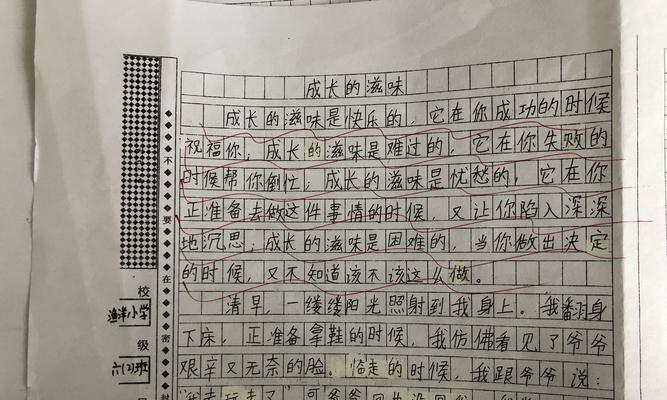 成长的滋味
成长的滋味是快乐的，它在你成功的时候
祝福你；成长的滋味是难过的，它在你失败的
时候帮你倒忙；成长的滋味是忧愁的，它在你
正准备去做这件事情的时候，又让你陷入深深
地沉思；成长的滋味是困难的，当你做出决定
的时候，又不知道该不该这么做。
清早，一缕缕阳光照射到我身上。我翻身
下床，正准备拿鞋的时候，我仿佛看见了爷爷
艰辛又无奈的脸。临走的时候，我跟爷爷说：
不要在密封
校
小学
级
六(2)班